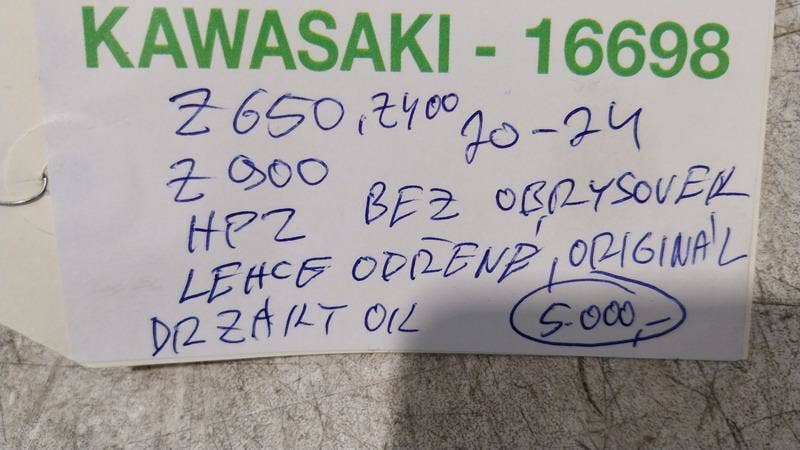 KAWASAKI - 16698
Z650, Z400 20-24
Z900
HPZ BEZ OBRYSOVEK
LEHCE ODŘENÉ, ORIGINÁL
DRZÁKY OK 5.000,-